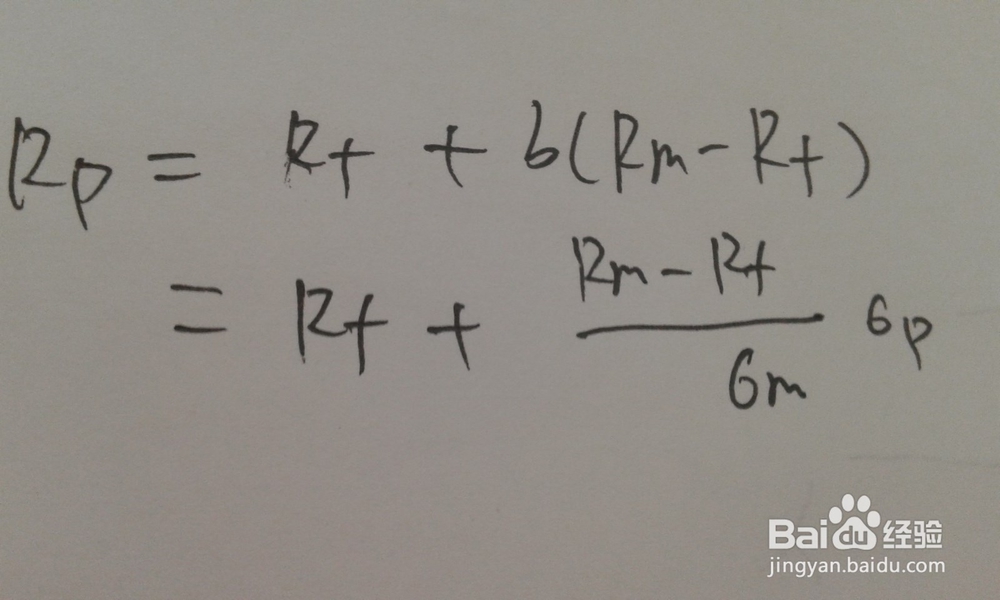 Rp = Rf + b(Rm - Rf)
= Rf + \frac{Rm - Rf}{6m} 6p
Baidu经验
jingyan.baidu.com